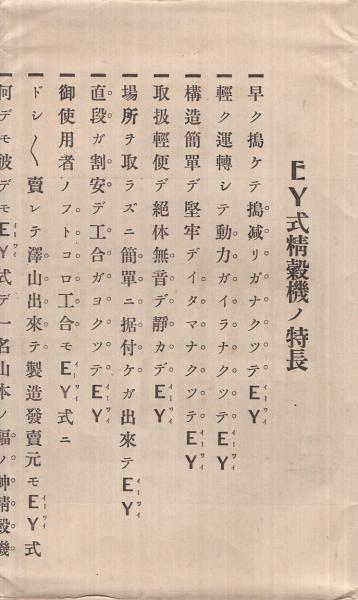 EY式精穀機ノ特長
一早ク搗ケテ搗減リガナクツテEYイーワイ
一輕ク運轉シテ動力ガイラナクツテEYイーワイ
一構造簡單デ堅牢デイタマナクツテEYイーワイ
一取扱輕便デ絕体無音デ靜カデEYイーワイ
一場所ヲ取ラズニ簡單ニ据付ケガ出來テEYイーワイ
一直段ガ割安デ工合ガヨクツテEYイーワイ
一御使用者ノフトコロ工合モEYイーワイ式ニ
一ドシ〱賣レテ澤山出來テ製造發賣元モEYイーワイ式
一何デモ彼デモEYイーワイ式デ一名山本ノ福ノ神精穀機